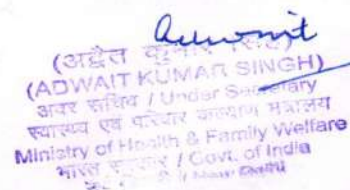 (अद्वैत कुमार सिंह)
(ADWAIT KUMAR SINGH)
अवर सचिव / Under Secretary
स्वास्थ्य एवं परिवार कल्याण मंत्रालय
Ministry of Health & Family Welfare
भारत सरकार / Govt. of India
New Delhi